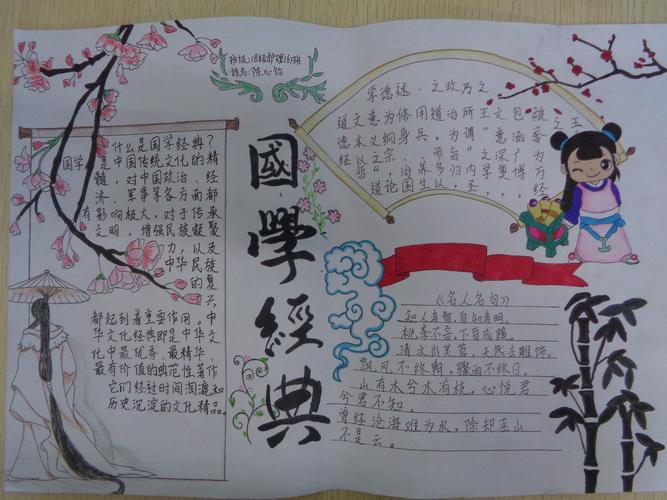 班级:18级护理16班
姓名:陈心怡
國學經典
什么是国学经典?
国学是中国传统文化的精
髓,对中国政治、经
济、军事等各方面都
有影响极大,对于传承
文明,增强民族凝聚
力,以及
中华民族
的复
兴
都起到着重要作用。中
华文化经典即是中华文
化中最优秀、最精华、
最有价值的典范性著作
它们经过时间淘漉和
历史沉淀的文化精品。
学德述、之政乃之
道文意为修用道治所王文包被之王
德本义纲身兵,为谓"意涵誉
经以之宗、而旨"之深广为
哲",沟养多归内学奥博万
道论国生以,圣,,经
《名人名句》
知人者智,自知者明。
桃李不言,下自成蹊。
清水出芙蓉,天然去雕饰。
飘风不终朝,骤雨不终日。
山有木兮木有枝,心悦君
兮君不知。
曾经沧海难为水,除却巫山
不是云。